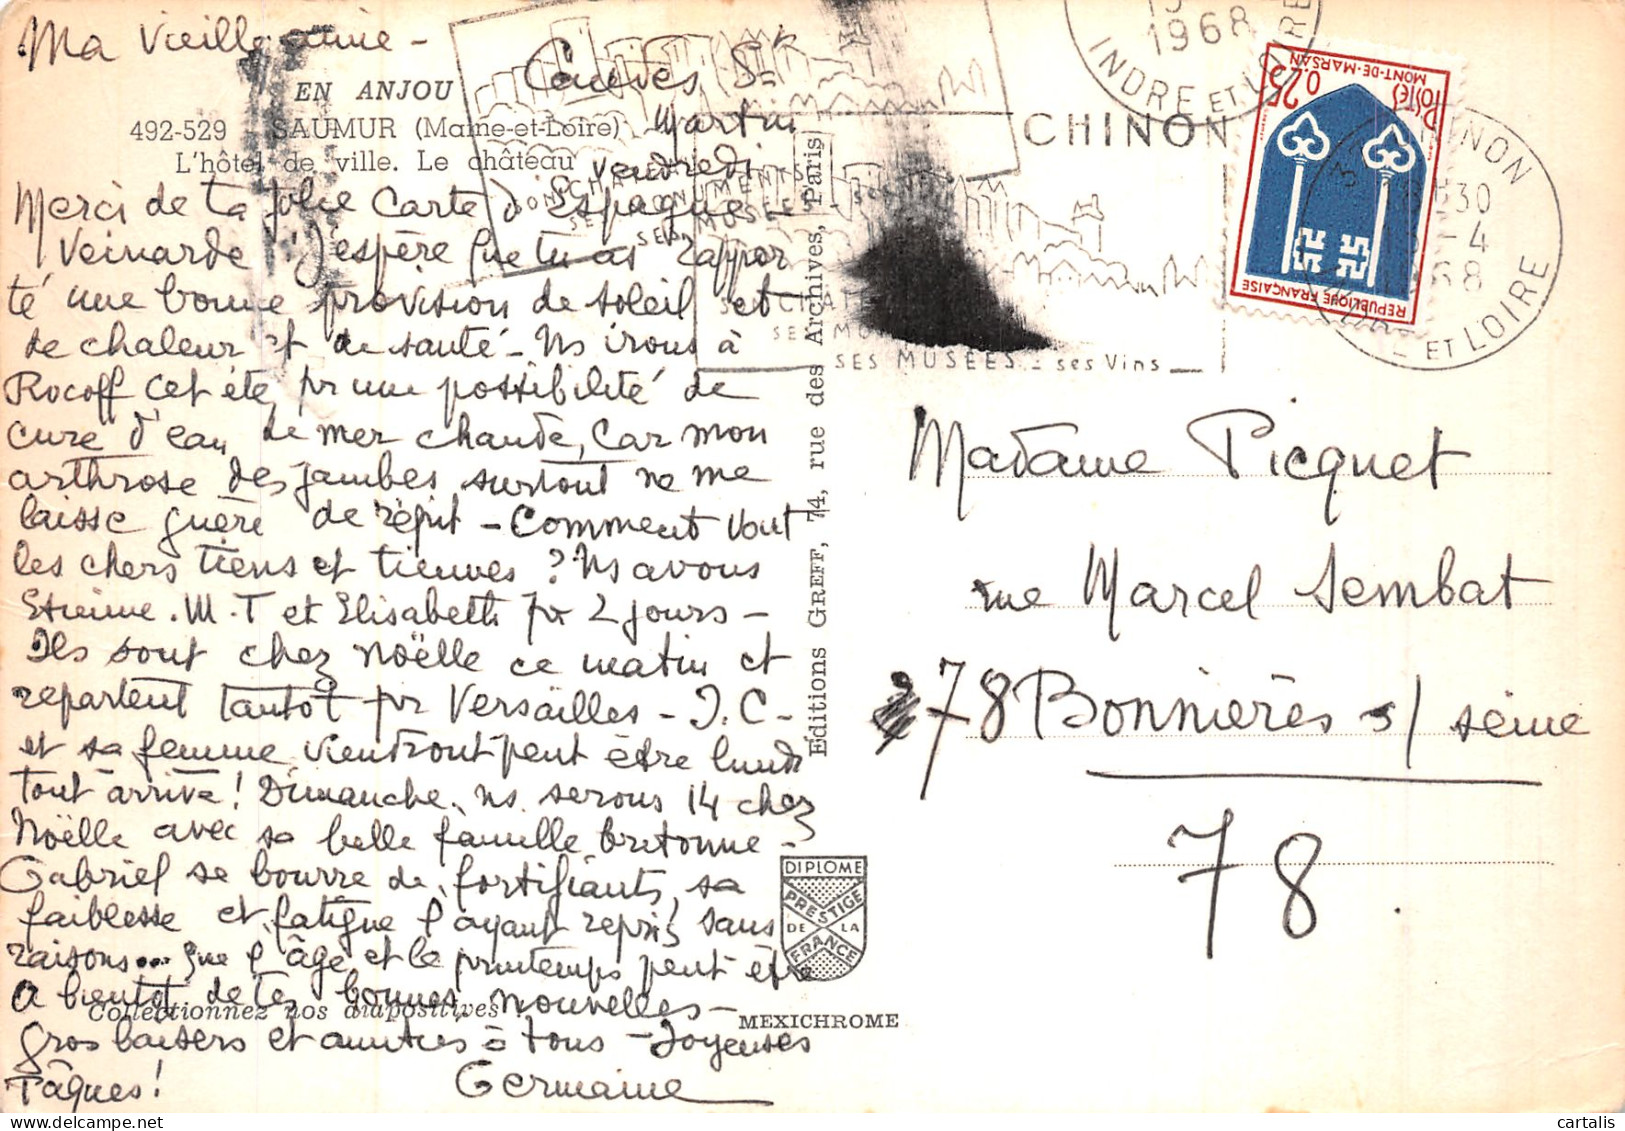 Ma Vieille amie -
Candes St
Martin
Vendredi
EN ANJOU
492-529 SAUMUR (Maine-et-Loire)
L'hôtel de ville. Le château
Merci de ta jolie Carte d'Espagne -
Veinarde ! J'espère que tu as rappor
té une bonne provision de soleil et
de chaleur et de santé - Ns irons à
Rocoff cet été, pr une possibilité de
cure d'eau de mer chaude, car mon
arthrose des jambes surtout ne me
laisse guère de répit - Comment vont
les chers tiens et tiennes ? Ns avons
Etienne. M.T et Elisabeth pr 2 jours -
Ils sont chez Noëlle ce matin et
repartent tantôt pr Versailles - J.C -
et sa femme viendront peut être lundi
tout arrive ! Dimanche, ns serons 14 chez
Noëlle avec sa belle famille bretonne -
Gabriel se bourre de fortifiants, sa
faiblesse et fatigue l'ayant repris sans
raisons... que l'âge et le printemps peut être
A bientôt de tes bonnes nouvelles -
Collectionnez nos diapositives !
gros baisers et amitiés à tous - Joyeuses
Pâques !
Germaine
Editions GREFF, 74, rue des Archives, Paris
DIPLOME
PRESTIGE
DE LA
FRANCE
MEXICHROME
1968
INDRE ET LOIRE
CHINON
SES MUSÉES - ses Vins
0,25
POSTES
MONT-DE-MARSAN
REPUBLIQUE FRANÇAISE
CHINON
H30
-4
1968
INDRE ET LOIRE
Madame Picquet
rue Marcel Sembat
78 Bonnières s/ seine
78
cartalis